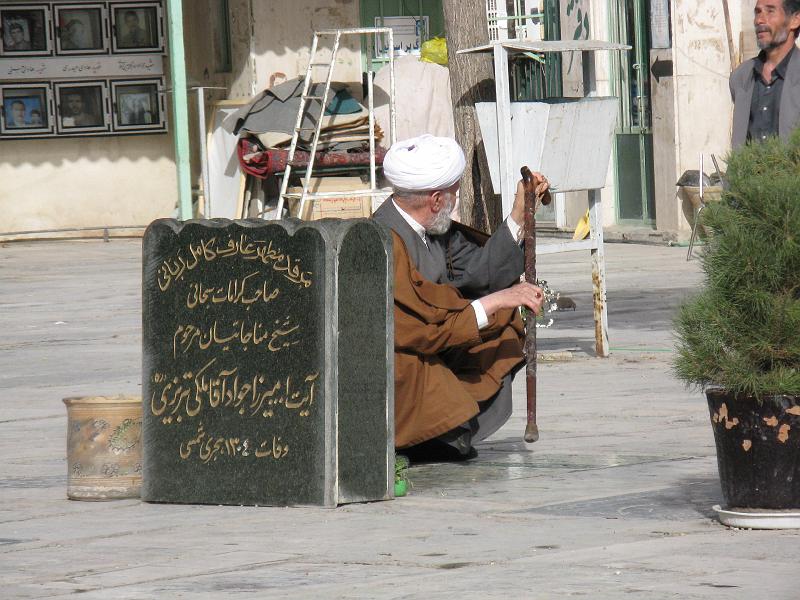 مرقد مطهر عارف کامل ربانی
صاحب کرامات سبحانی
شیخ مناجاتیان مرحوم
آیت ا... میرزا جواد آقا ملکی تبریزی (ره)
وفات ۱۳۰٤ هجری شمسی